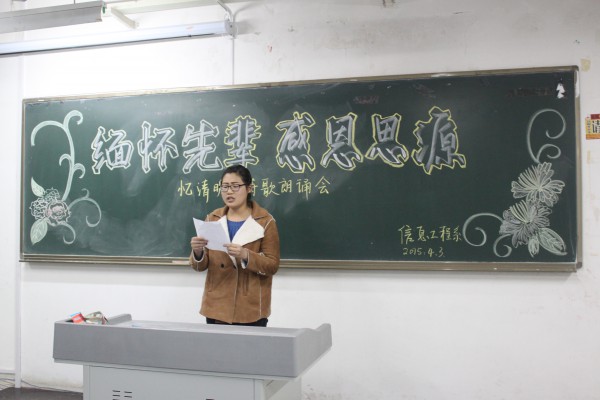 缅怀先辈 感恩思源
忆清明 诗歌朗诵会
信息工程系
2015.4.3